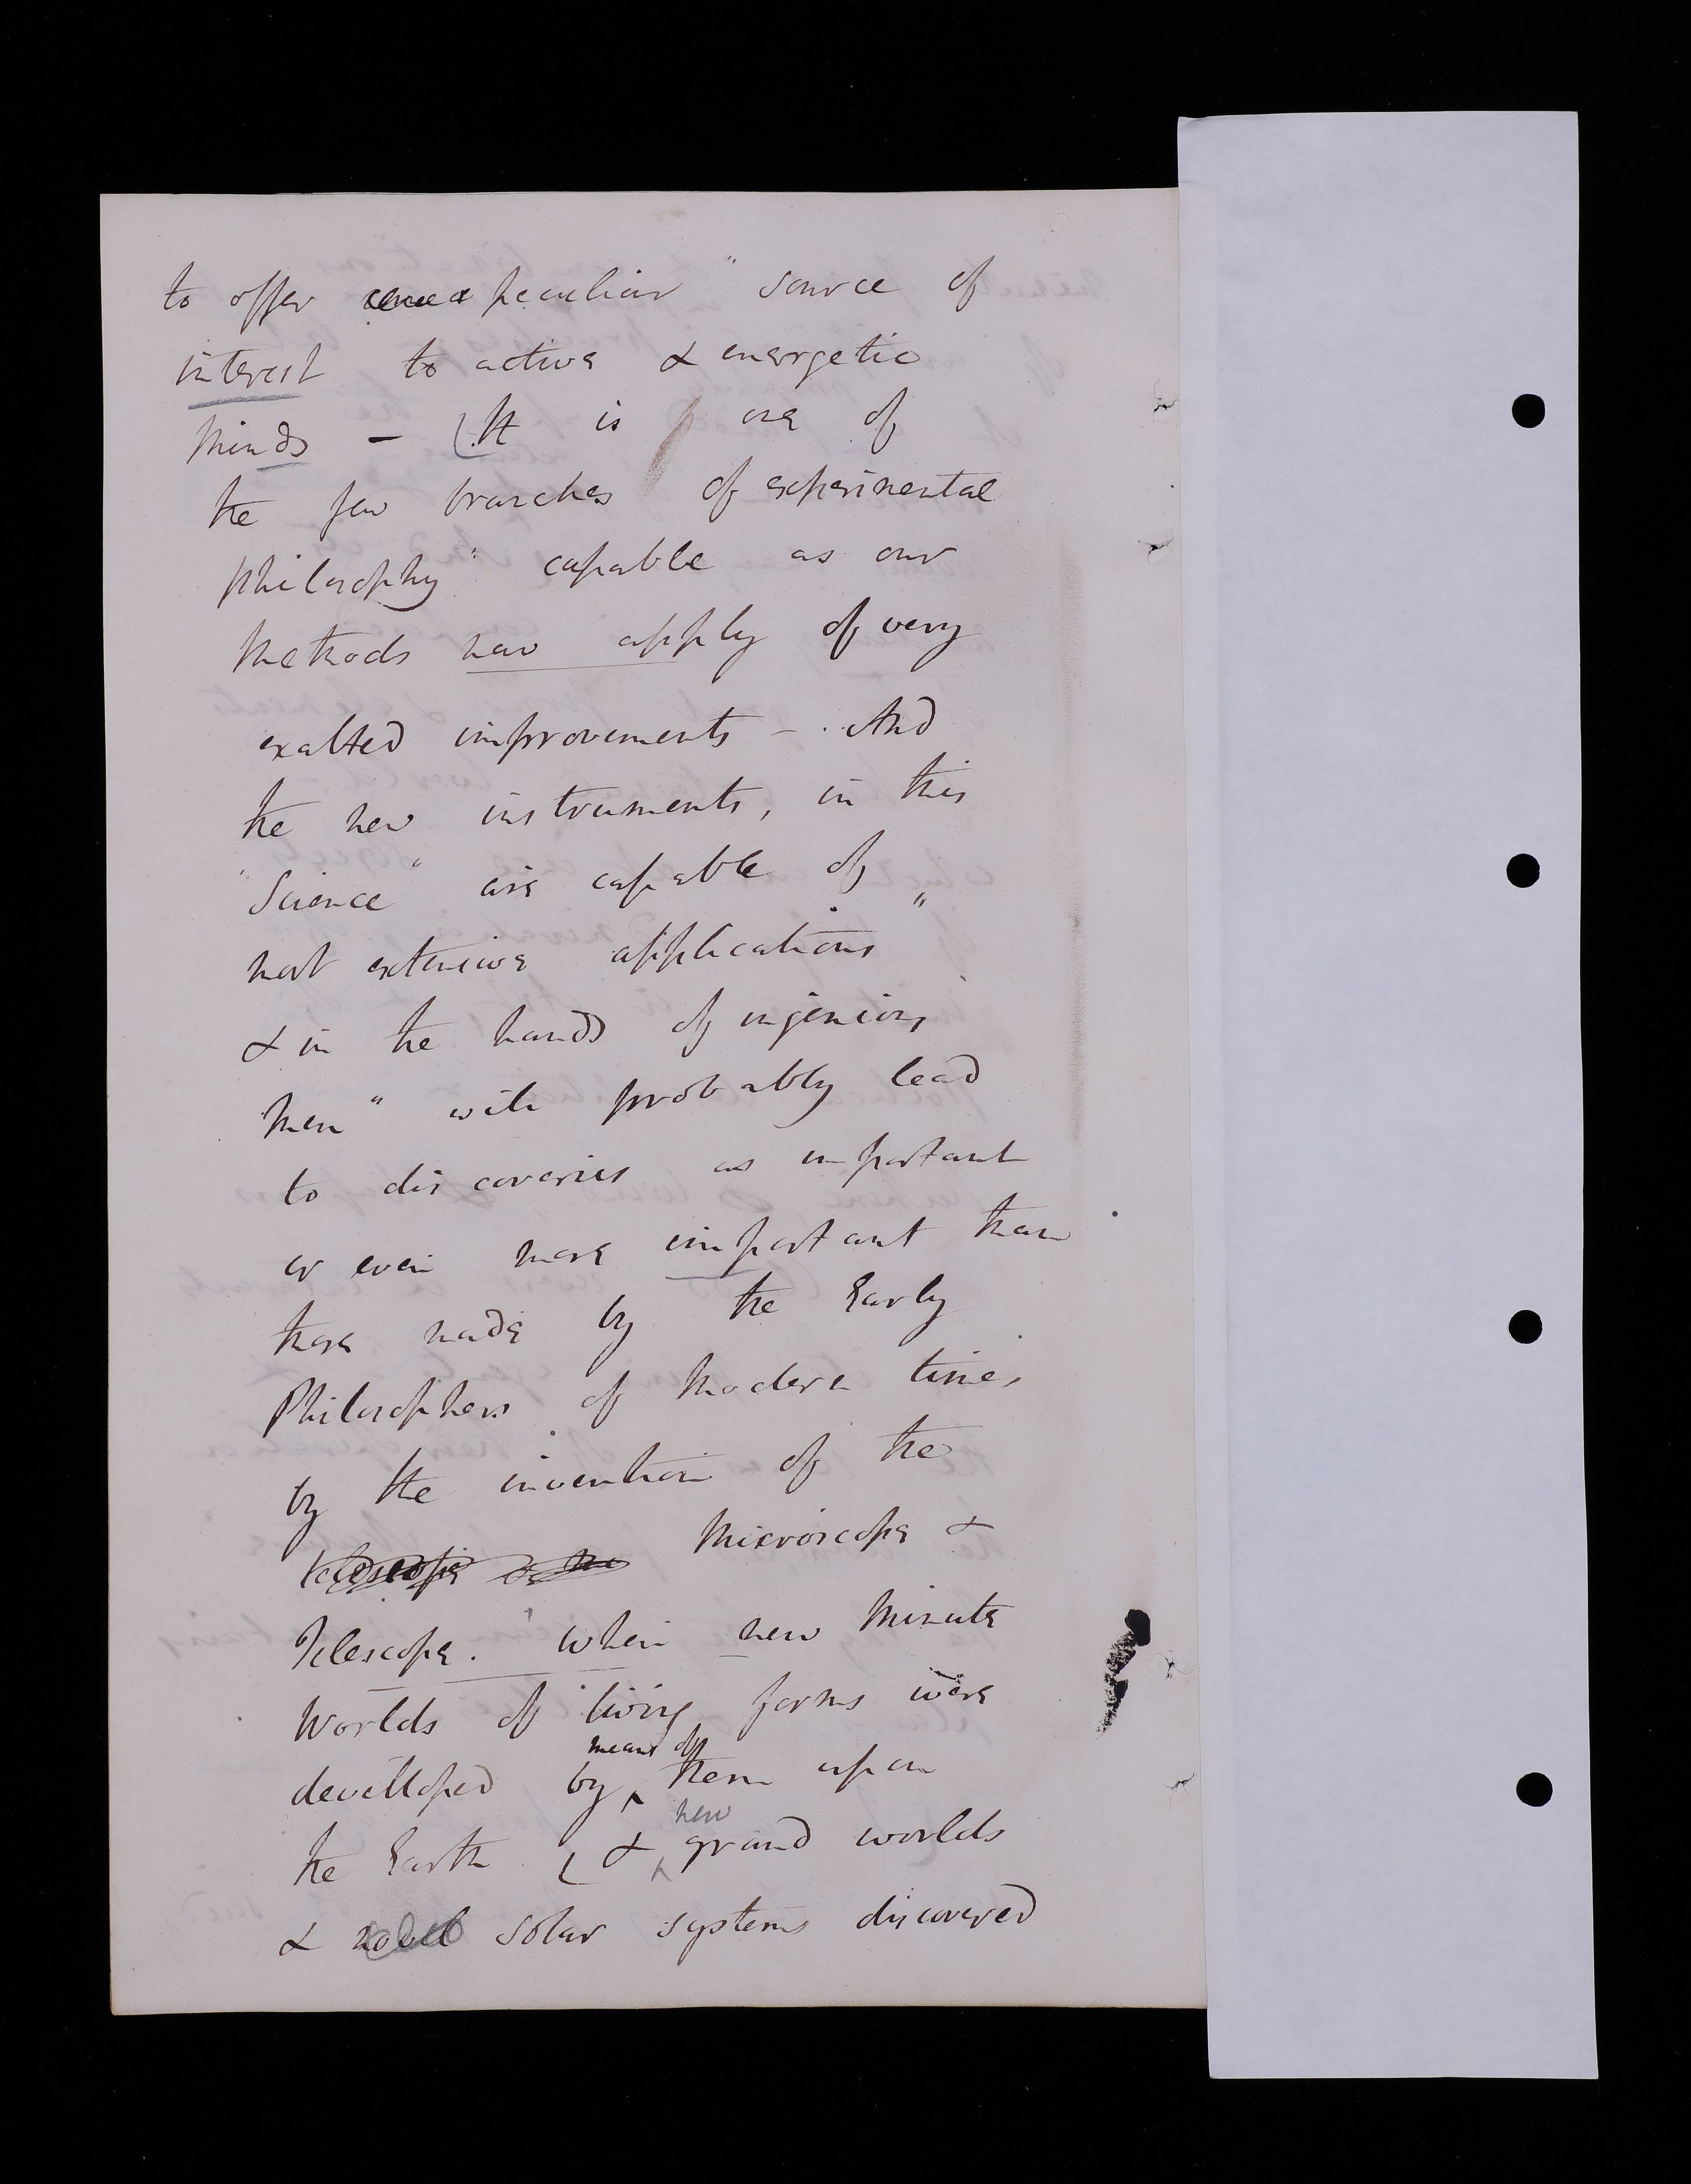 to offer a peculiar " source of
interest to active & energetic
Minds – (It is one of
the few branches of experimental
philosophy " capable as our
Methods now apply of very
exalted improvements – . And
the new instruments, in this
"Science" are capable of
most extensive applications "
& in the hands of ingenious
Men " will probably lead
to discoveries as important
or even more important than
those made by the Early
Philosophers of Modern times
by the invention of the
telescope & the Microscope &
Telescope. " when new Minute
Worlds of living forms were
developed by means of them upon
the Earth ( & new grand worlds
& solar systems discovered